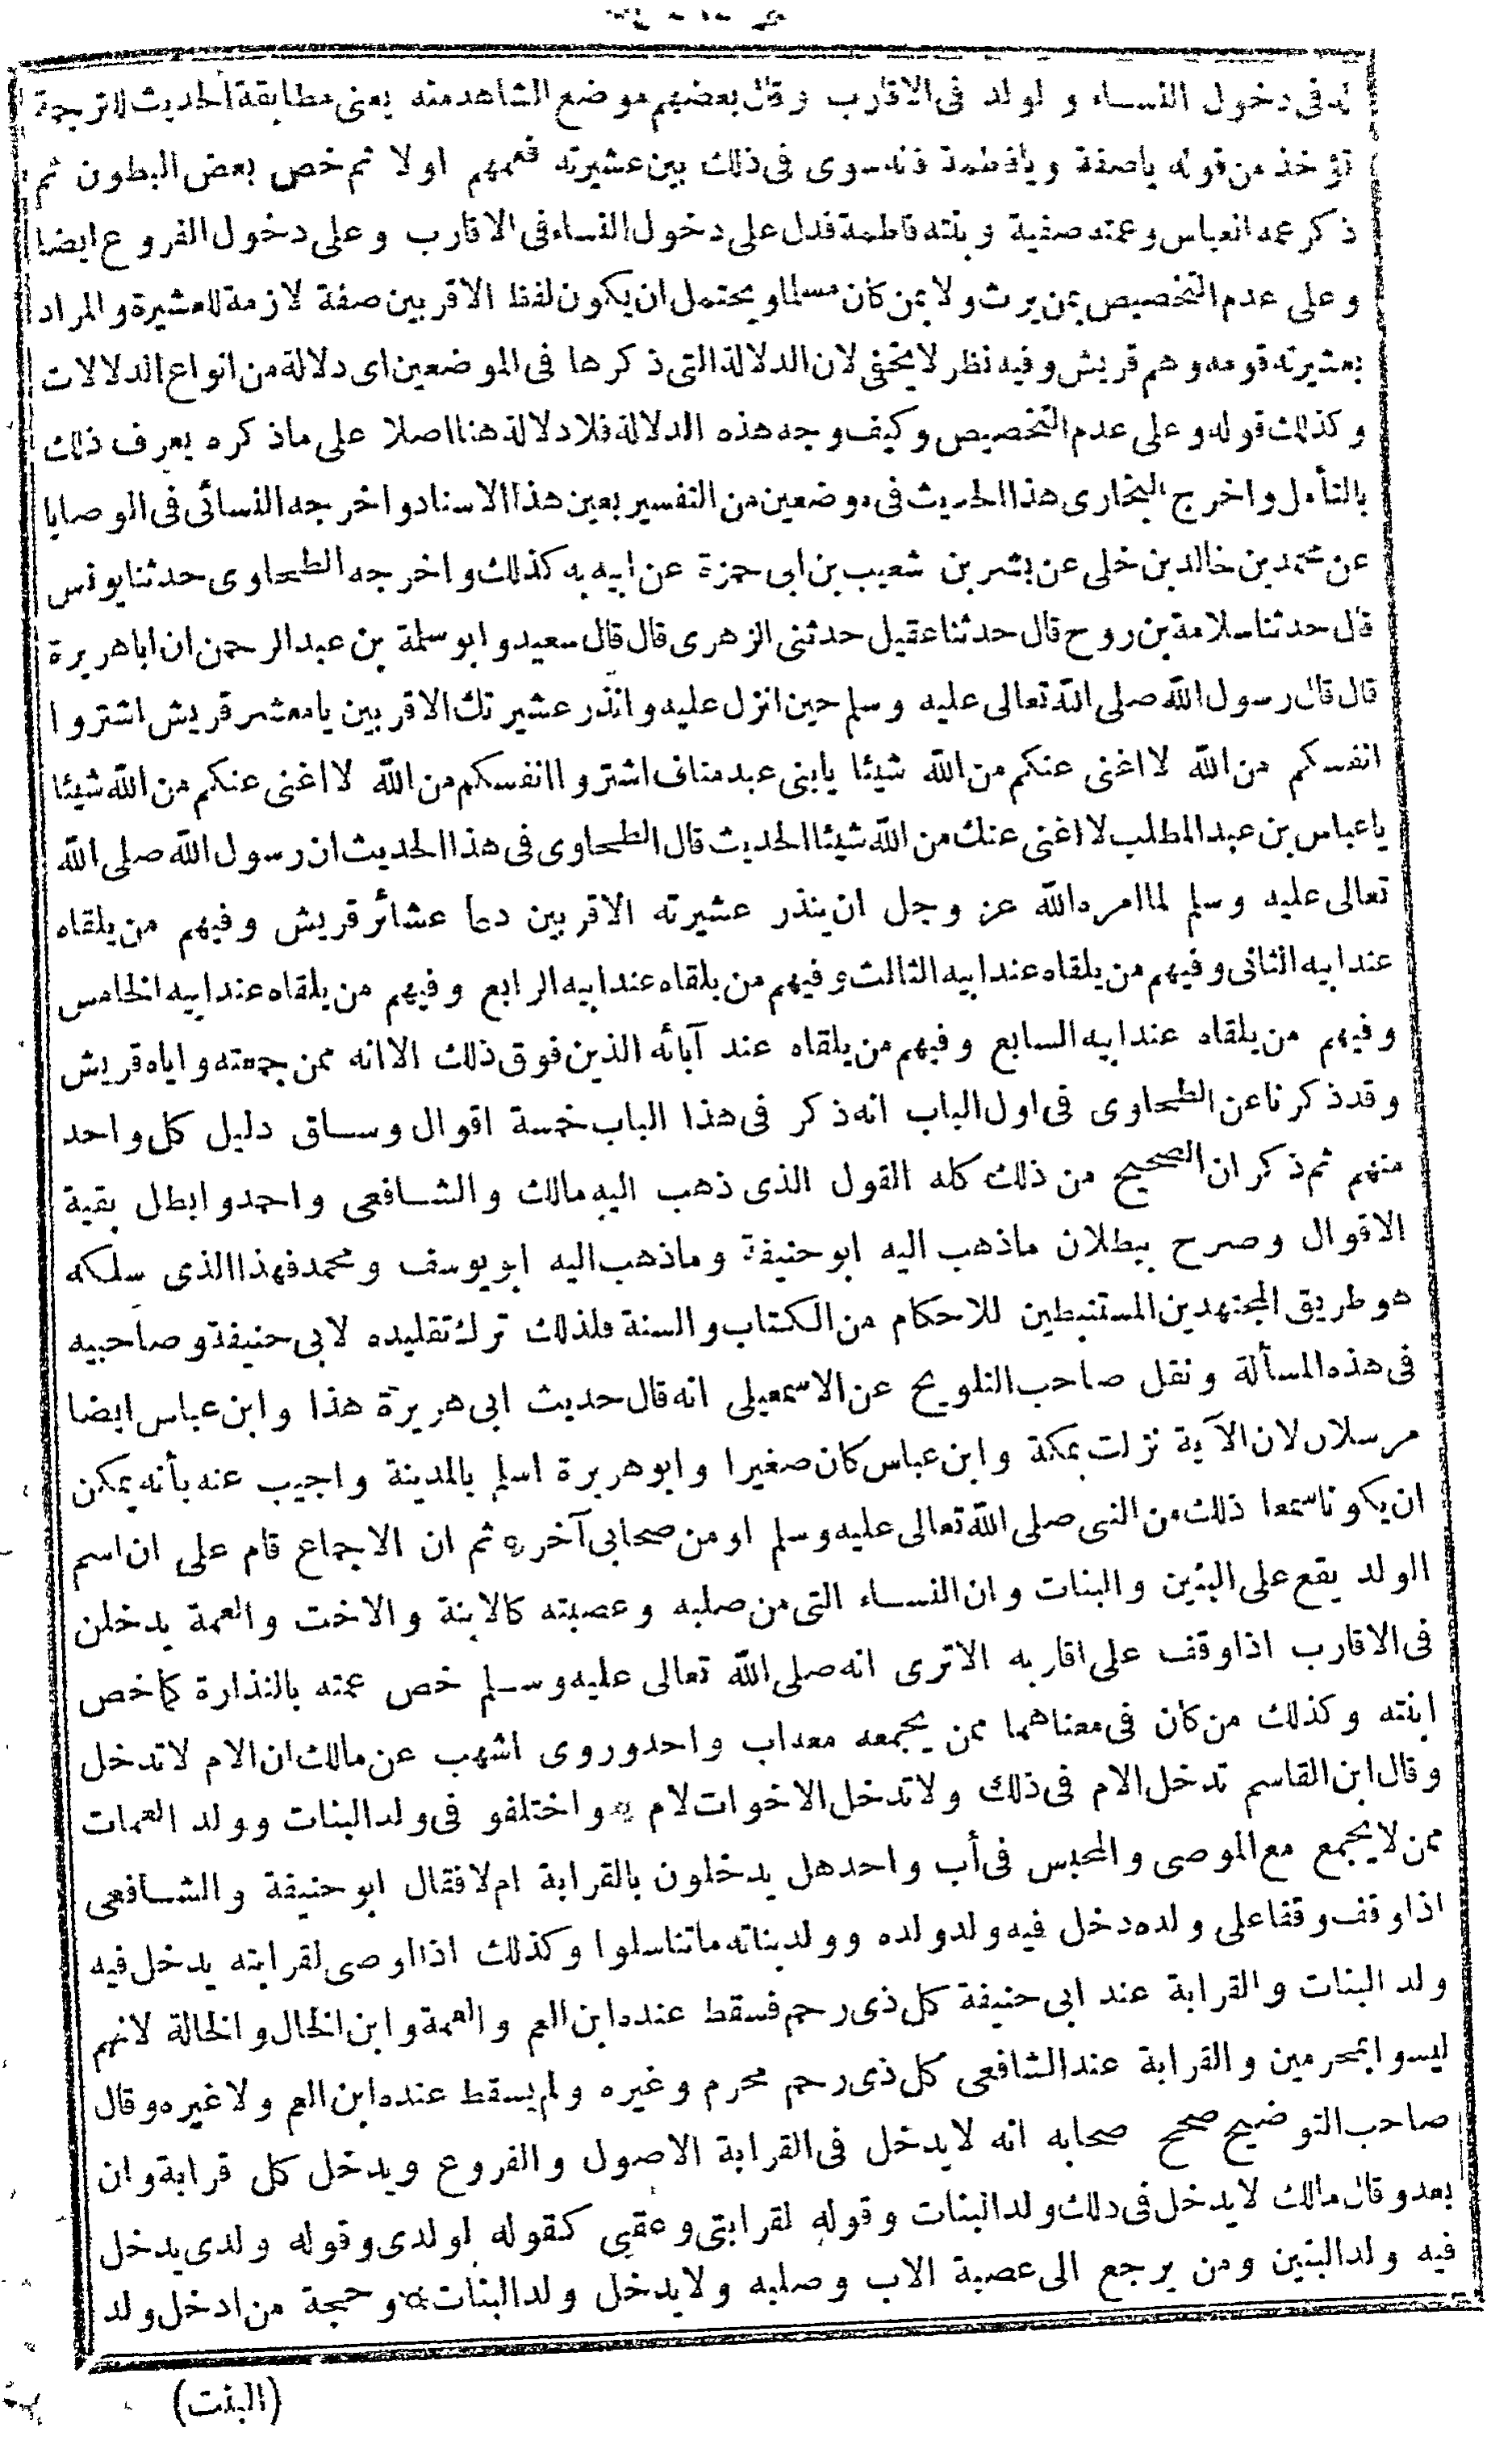 له فى دخول النساء و لولد فى الاقارب وقال بعضهم موضع الشاهد منه يعنى مطابقة الحديث للترجمة
تؤخذ من قوله ياصفية ويافاطمة فانه سوى فى ذلك بين عشيرته فعمهم اولا ثم خص بعض البطون ثم
ذكر عمه العباس وعمته صفية وبنته فاطمة فدل على دخول النساء فى الاقارب وعلى دخول الفروع ايضا
وعلى عدم التخصيص بمن يرث ولا بمن كان مسلما ويحتمل ان يكون لفظ الاقربين صفة لازمة للعشيرة والمراد
بعشيرته قومه وهم قريش وفيه نظر لا يخفى لان الدلالة التى ذكرها فى الموضعين اى دلالة من انواع الدلالات
وكذلك قوله وعلى عدم التخصيص وكيف وجه هذه الدلالة فلا دلالة هنا اصلا على ماذكره يعرف ذلك
بالتأمل واخرج البخارى هذا الحديث فى موضعين من التفسير بعين هذا الاسناد واخرجه النسائى فى الوصايا
عن محمد بن خالد بن خلى عن بشر بن شعيب بن ابى حمزة عن ابيه به كذلك واخرجه الطحاوى حدثنا يونس
قال حدثنا سلامة بن روح قال حدثنا عقيل حدثنى الزهرى قال قال سعيد وابو سلمة بن عبد الرحمن ان اباهريرة
قال قال رسول الله صلى الله تعالى عليه وسلم حين انزل عليه وانذر عشيرتك الاقربين يا معشر قريش اشتروا
انفسكم من الله لا اغنى عنكم من الله شيئا يابنى عبد مناف اشتروا انفسكم من الله لا اغنى عنكم من الله شيئا
ياعباس بن عبد المطلب لا اغنى عنك من الله شيئا الحديث قال الطحاوى فى هذا الحديث ان رسول الله صلى الله
تعالى عليه وسلم لما امره الله عز وجل ان ينذر عشيرته الاقربين دعا عشائر قريش وفيهم من يلقاه
عند ابيه الثانى وفيهم من يلقاه عند ابيه الثالث وفيهم من يلقاه عند ابيه الرابع وفيهم من يلقاه عند ابيه الخامس
وفيهم من يلقاه عند ابيه السابع وفيهم من يلقاه عند آبائه الذين فوق ذلك الا انه ممن جمعته واياه قريش
وقد ذكرنا عن الطحاوى فى اول الباب انه ذكر فى هذا الباب خمسة اقوال وساق دليل كل واحد
منهم ثم ذكر ان الصحيح من ذلك كله القول الذى ذهب اليه مالك والشافعى واحمد وابطل بقية
الاقوال وصرح ببطلان ماذهب اليه ابو حنيفة وماذهب اليه ابو يوسف ومحمد فهذا الذى سلكه
هو طريق المجتهدين المستنبطين للاحكام من الكتاب والسنة فلذلك ترك تقليده لابى حنيفة وصاحبيه
فى هذه المسألة ونقل صاحب التلويح عن الاسمعيلى انه قال حديث ابى هريرة هذا وابن عباس ايضا
مرسلان لان الآية نزلت بمكة وابن عباس كان صغيرا وابو هريرة اسلم بالمدينة واجيب عنه بأنه يمكن
ان يكونا سمعا ذلك من النبى صلى الله تعالى عليه وسلم او من صحابى آخر ۞ ثم ان الاجماع قام على ان اسم
الولد يقع على البنين والبنات وان النساء التى من صلبه وعصبته كالابنة والاخت والعمة يدخلن
فى الاقارب اذا وقف على اقاربه الاترى انه صلى الله تعالى عليه وسلم خص عمته بالنذارة كما خص
ابنته وكذلك من كان فى معناهما ممن يجمعه معه اب واحد وروى اشهب عن مالك ان الام لا تدخل
وقال ابن القاسم تدخل الام فى ذلك ولا تدخل الاخوات لام ۞ واختلفو فى ولد البنات وولد العمات
ممن لا يجمع مع الموصى والمحبس فى أب واحد هل يدخلون بالقرابة ام لا فقال ابو حنيفة والشافعى
اذا وقف وقفا على ولده دخل فيه ولد ولده وولد بناته ماتناسلوا وكذلك اذا اوصى لقرابته يدخل فيه
ولد البنات والقرابة عند ابى حنيفة كل ذى رحم فسقط عنده ابن العم والعمة وابن الخال والخالة لانهم
ليسوا بمحرمين والقرابة عند الشافعى كل ذى رحم محرم وغيره ولم يسقط عنده ابن العم ولا غيره وقال
صاحب التوضيح صحح صحابه انه لا يدخل فى القرابة الاصول والفروع ويدخل كل قرابة وان
بعد وقال مالك لا يدخل فى ذلك ولد البنات وقوله لقرابتى وعقبى كقوله لولدى وقوله ولدى يدخل
فيه ولد البنين ومن يرجع الى عصبة الاب وصلبه ولا يدخل ولد البنات ۞ وحجة من ادخل ولد
(البنت)